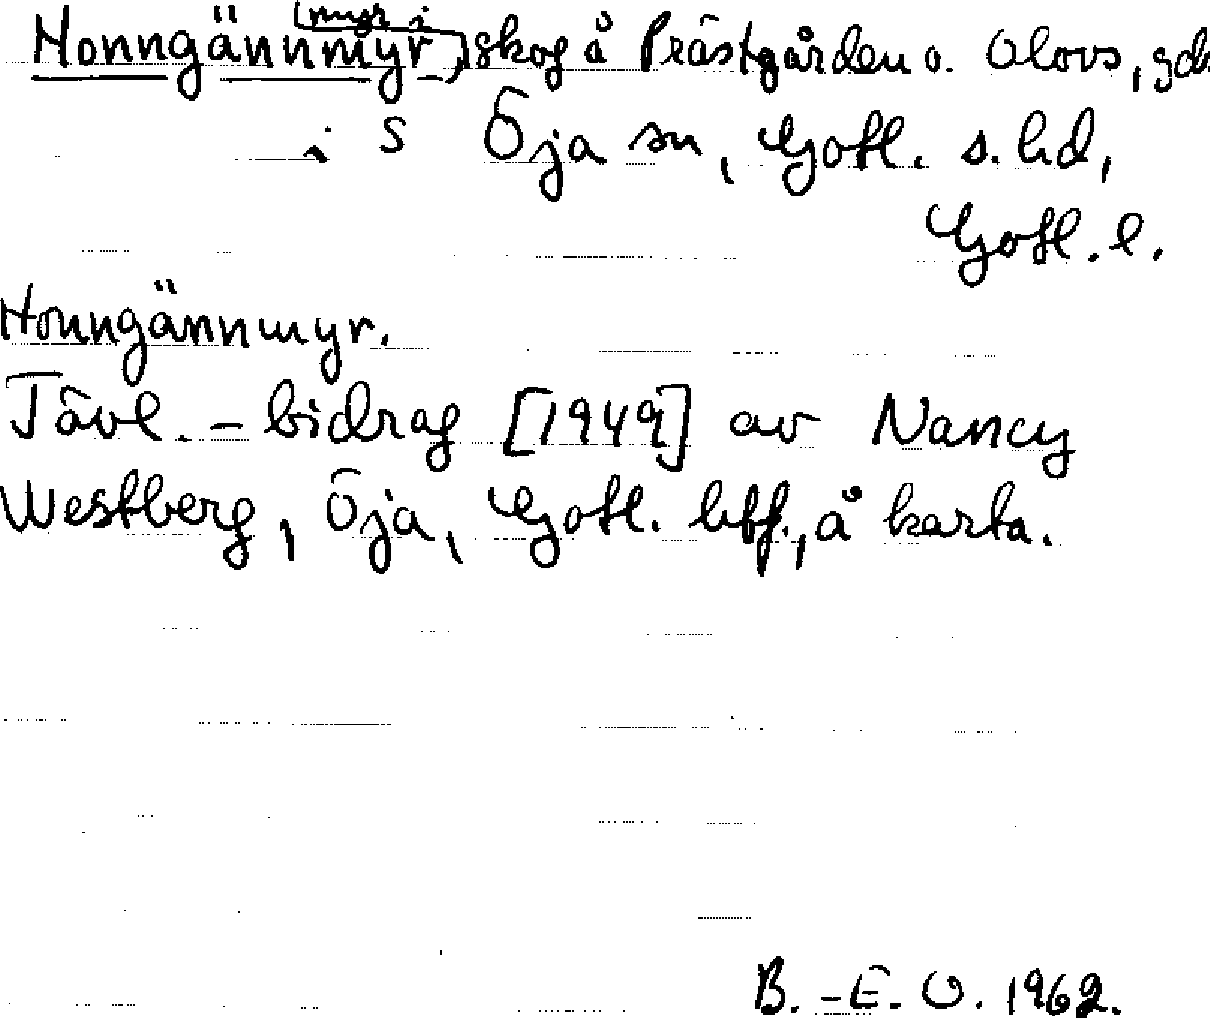 Honngännmyr, myr i skog å Prästgården o. Olovs, gdr
i S Öja sn, Gotl. s. hd,
Gotl. l.
Honngännmyr.
Tävl.-bidrag [1949] av Nancy
Westberg, Öja, Gotl. hff., å karta.
B.-E. O. 1962.